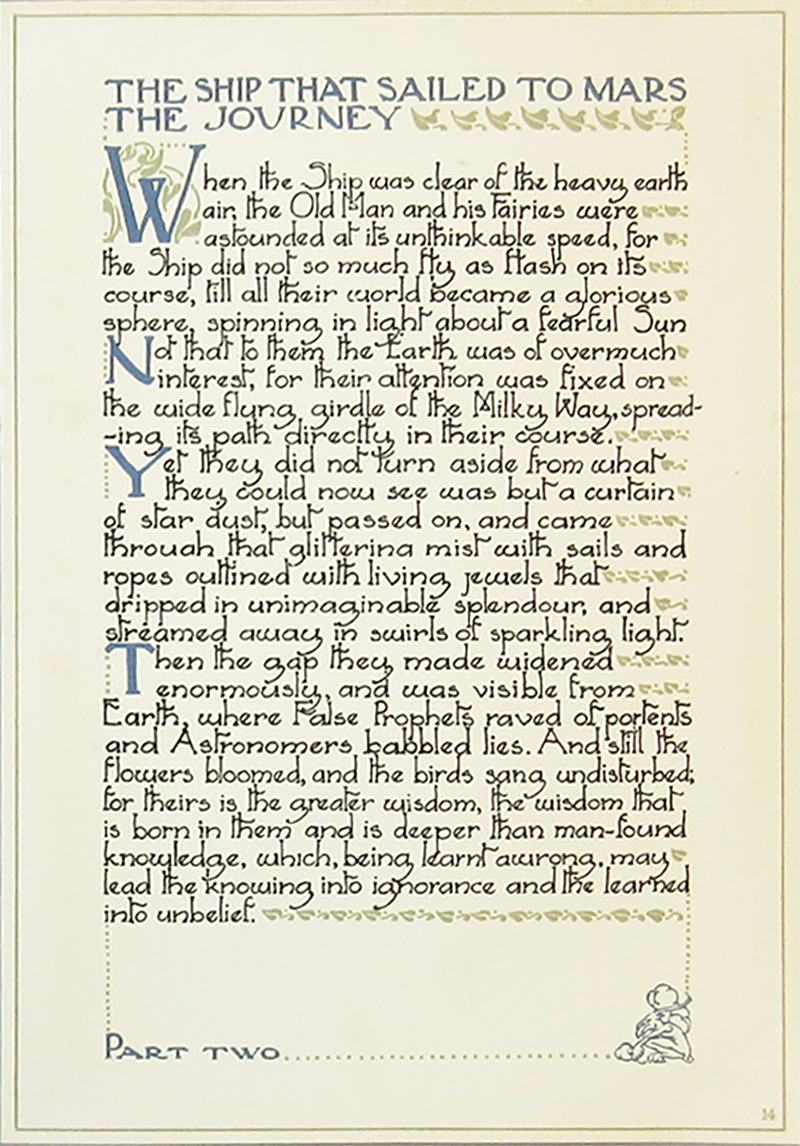 THE SHIP THAT SAILED TO MARS
THE JOURNEY
When the Ship was clear of the heavy earth
air, the Old Man and his Fairies were
astounded at its unthinkable speed, for
the Ship did not so much fly as flash on its
course, till all their world became a glorious
sphere, spinning in light about a fearful Sun
Not that to them the Earth was of overmuch
interest, for their attention was fixed on
the wide flung girdle of the Milky Way, spread-
-ing its path directly in their course.
Yet they did not turn aside from what
they could now see was but a curtain
of star dust, but passed on, and came
through that glittering mist with sails and
ropes outlined with living jewels that
dripped in unimaginable splendour, and
streamed away in swirls of sparkling light.
Then the gap they made widened
enormously, and was visible from
Earth, where False Prophets raved of portents
and Astronomers babbled lies. And still the
flowers bloomed, and the birds sang undisturbed;
for theirs is the greater wisdom, the wisdom that
is born in them and is deeper than man-found
knowledge, which, being learnt awrong, may
lead the knowing into ignorance and the learned
into unbelief.
PART TWO
14